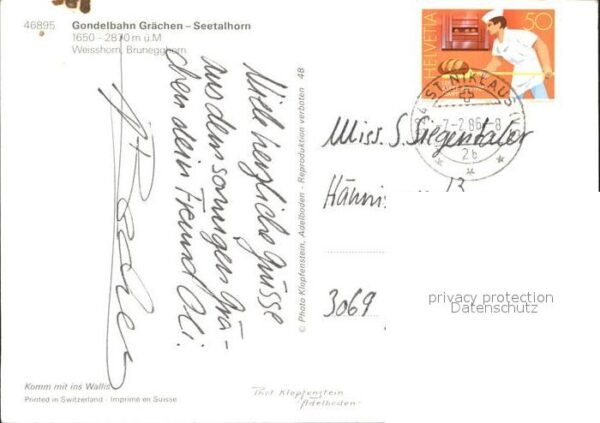 46895 Gondelbahn Grächen – Seetalhorn
1650 - 2870 m ü.M.
Weisshorn, Brunegghorn
Viele herzliche Grüsse
aus dem sonnigen Grä-
chen dein Freund Oli.
© Photo Klopfenstein, Adelboden - Reproduktion verboten 48
HELVETIA 50
ST. NIKLAUS
-7-2.86-8
26
Miss. S. Siegentaler
Hänni
13
3069
privacy protection
Datenschutz
Komm mit ins Wallis
Printed in Switzerland - Imprimé en Suisse
Phot Klopfenstein
Adelboden